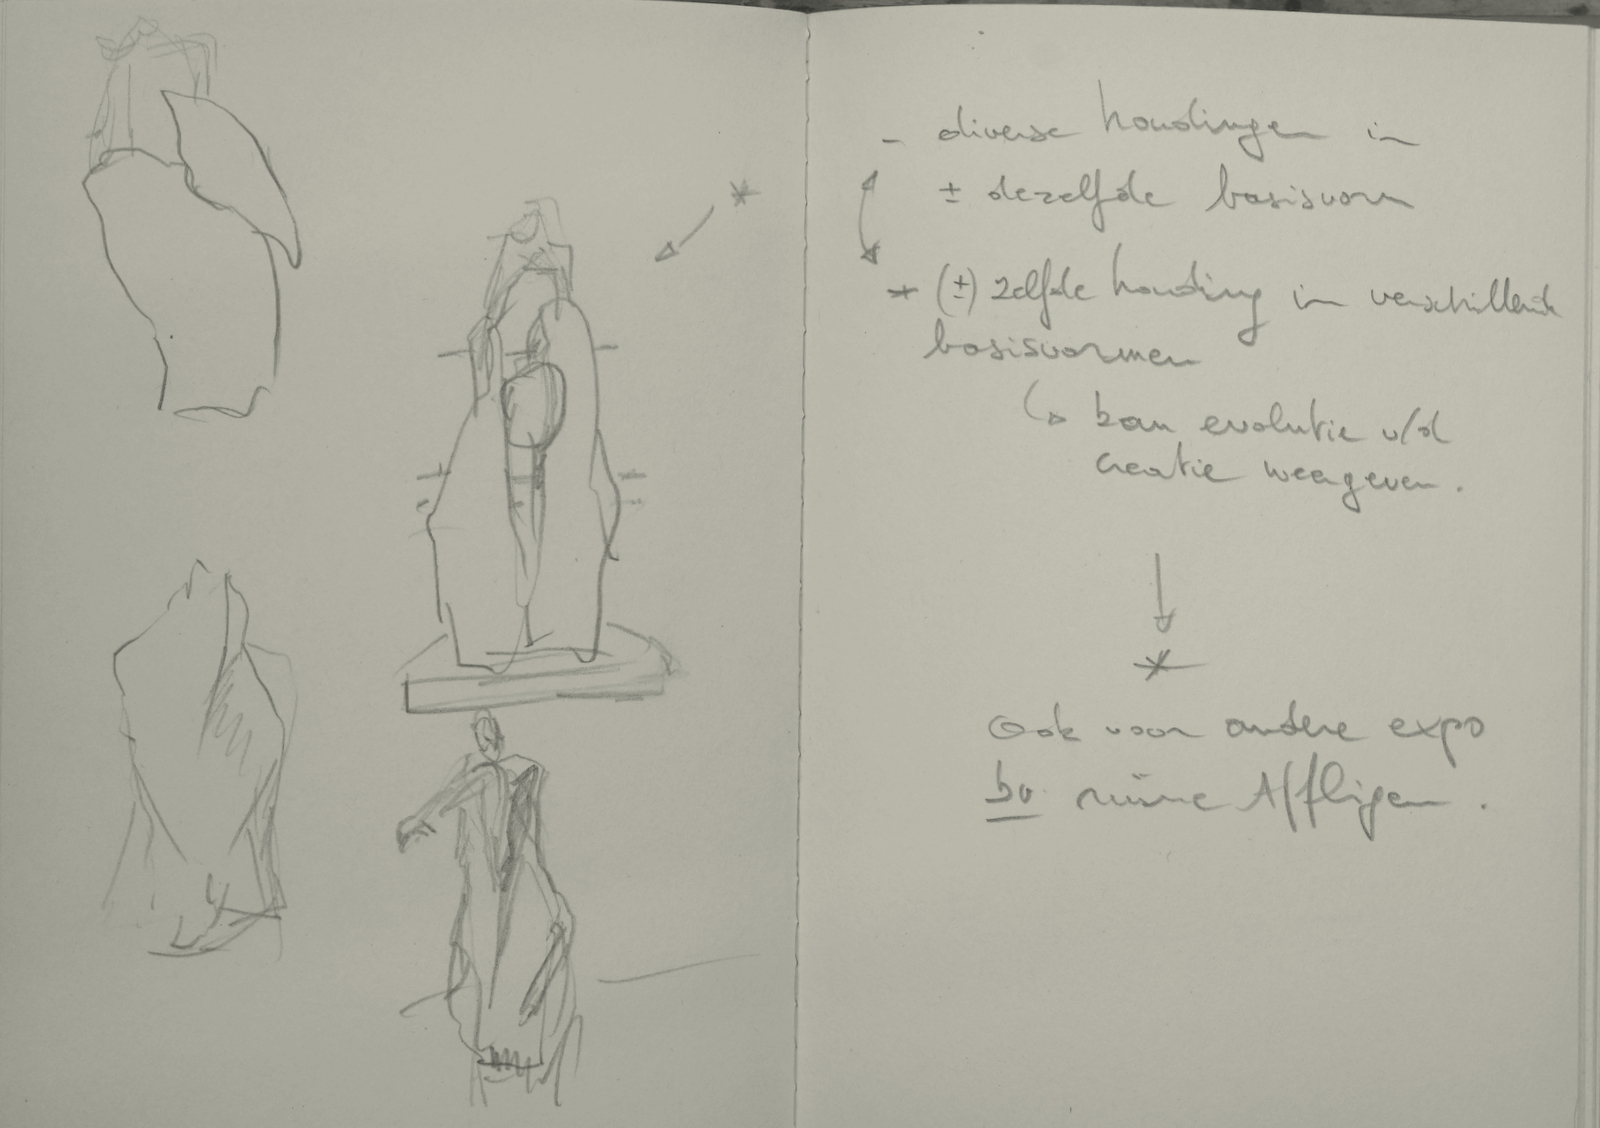 - diverse houdingen in
± dezelfde basisvorm
* (±) zelfde houding in verschillende
basisvormen
↳ kan evolutie v/d
creatie weergeven.
↓
*
Ook voor andere expo
bv ruïne Affligem.
*